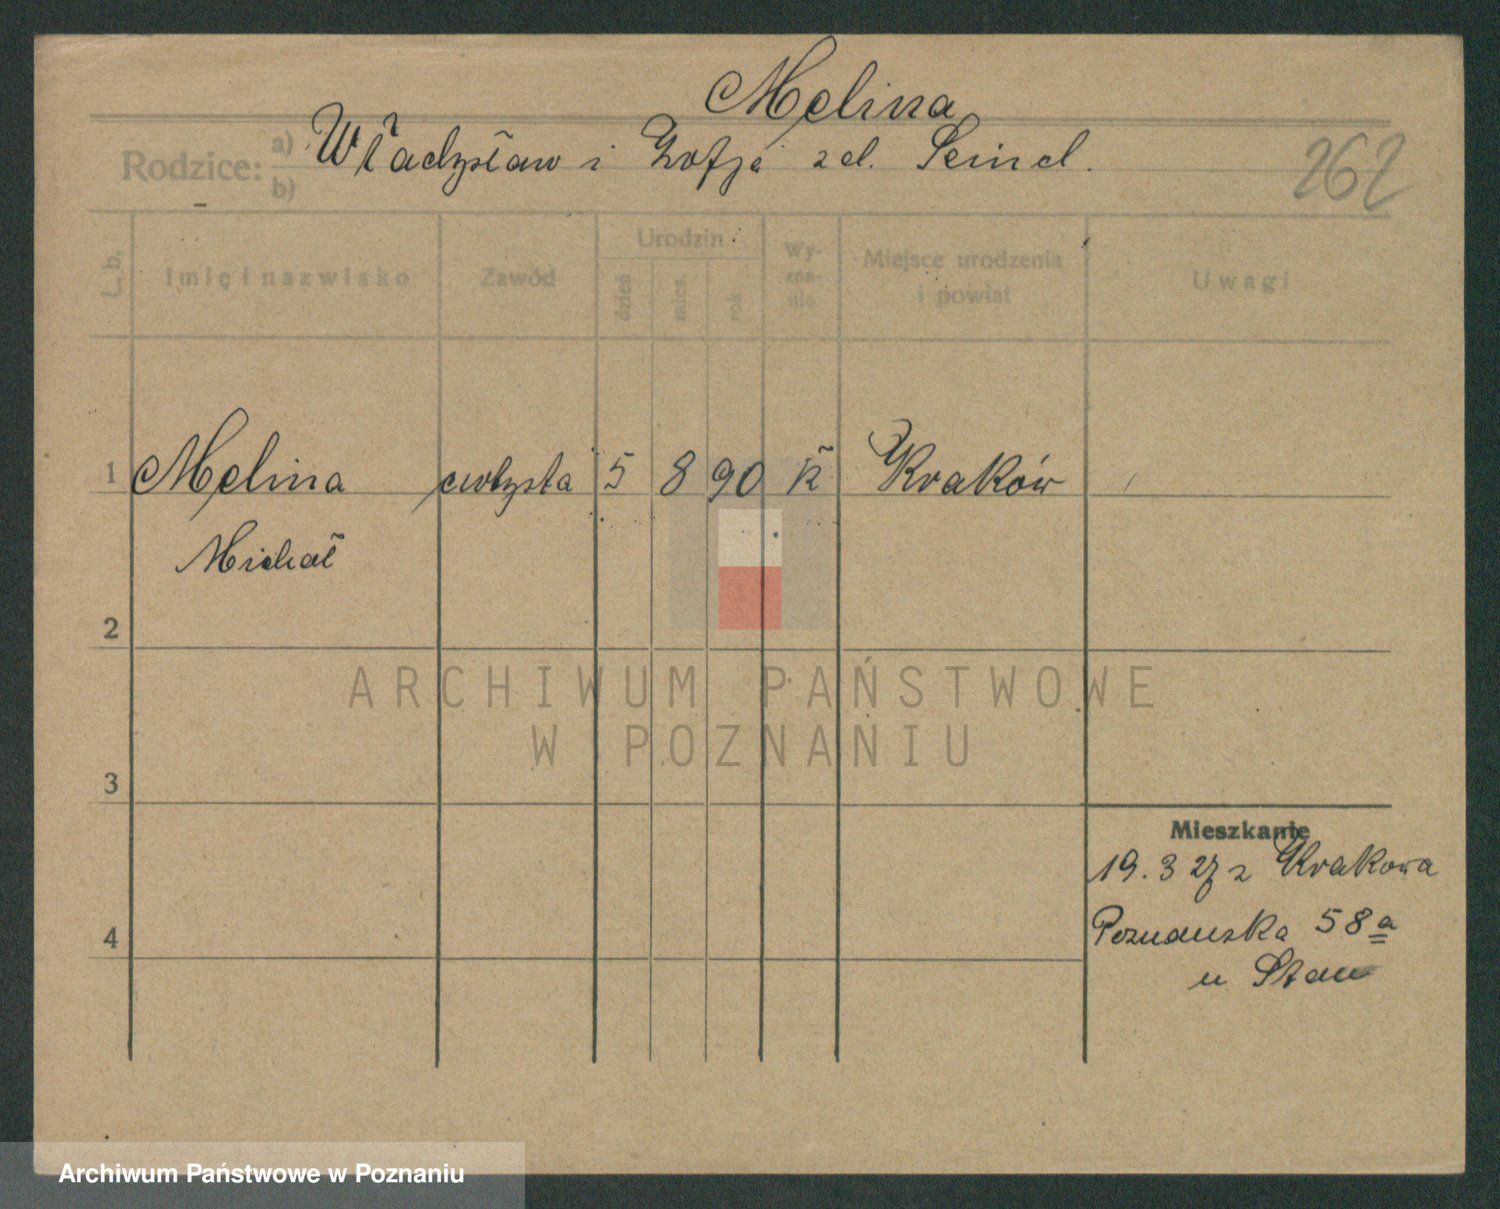 Melina
Rodzice: a) Władysław i Zofja z d. Seind.
b)
262
L. b. Imię i nazwisko Zawód Urodzin Wy- Miejsce urodzenia Uwagi
dzień mies. rok zna- i powiat
nie
1 Melina artysta 5 8 90 k Kraków
Michał
2
ARCHIWUM PAŃSTWOWE
W POZNANIU
3
Mieszkanie
19. 3 27 z Krakowa
4 Poznanska 58 a
u Stan
Archiwum Państwowe w Poznaniu